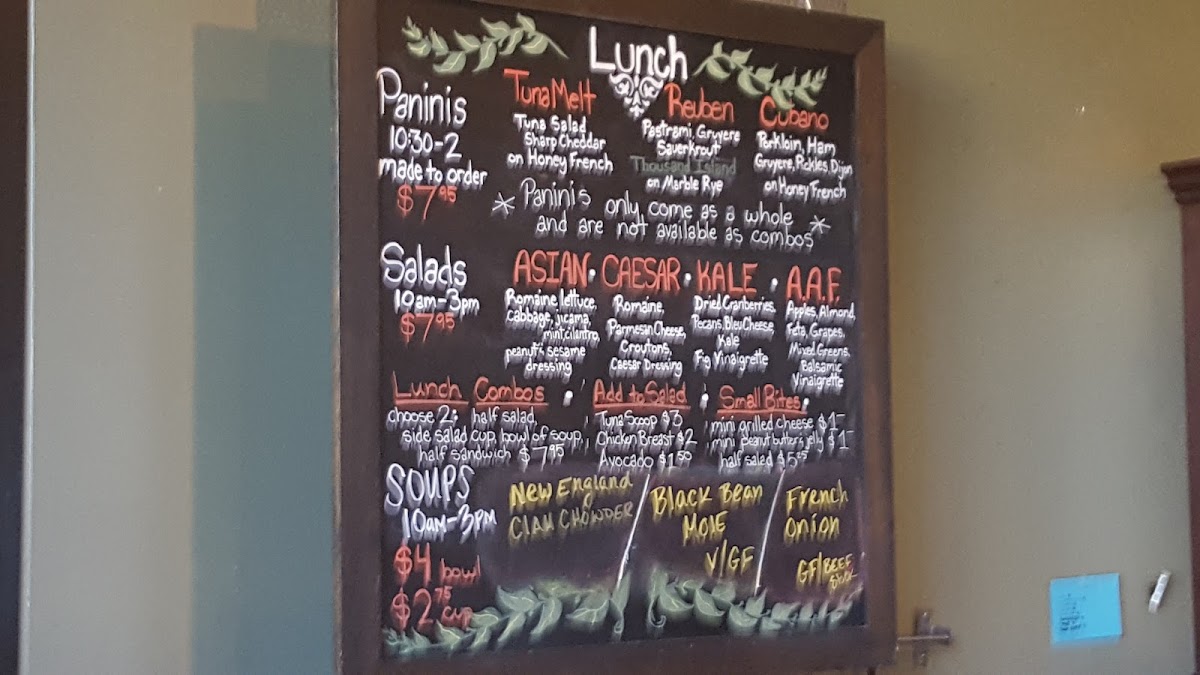 Lunch
Paninis
10:30-2
made to order
$7.95
Tuna Melt
Tuna Salad
Sharp Cheddar
on Honey French
Reuben
Pastrami, Gruyere
Sauerkrout
Thousand Island
on Marble Rye
Cubano
Porkloin, Ham
Gruyere, Pickles, Dijon
on Honey French
* Paninis only come as a whole *
and are not available as combos
Salads
10am-3pm
$7.95
ASIAN • CAESAR • KALE • A.A.F.
Romaine lettuce,
cabbage, jicama,
mint, cilantro,
peanuts, sesame
dressing
Romaine,
Parmesan Cheese,
Croutons,
Caesar Dressing
Dried Cranberries,
Pecans, Bleu Cheese,
Kale
Fig Vinaigrette
Apples, Almond,
Feta, Grapes,
Mixed Greens,
Balsamic
Vinaigrette
Lunch Combos •
choose 2: half salad,
side salad cup, bowl of soup,
half sandwich $7.95
Add to Salad •
Tuna Scoop $3
Chicken Breast $2
Avocado $1.50
Small Bites
mini grilled cheese $1-
mini peanut butter & jelly $1-
half salad $5.25
SOUPS
10am-3pm
$4 bowl
$2.75 cup
New England
Clam Chowder
Black Bean
Mole
V/GF
French
Onion
GF/BEEF